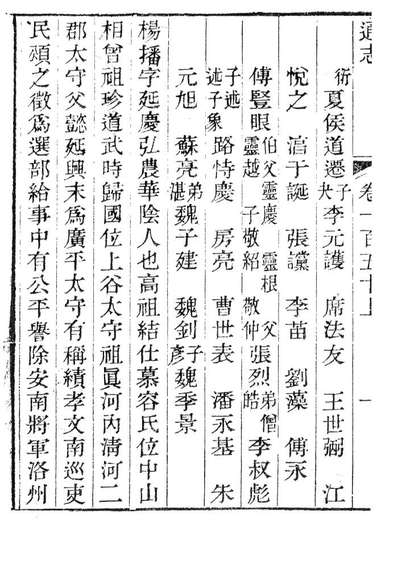 通志 卷一百五十上 一
衍 夏侯道遷 子夬 李元護 席法友 王世弼 江
悅之 湻于誕 張讜 李苗 劉藻 傅永
傅豎眼 伯父靈慶 靈根 父靈越 子敬紹 敬仲 張烈 弟僧皓 李叔彪
子述 述子象 路恃慶 房亮 曹世表 潘永基 朱
元旭 蘇亮 弟湛 魏子建 魏釗 子彥 魏季景
楊播字延慶弘農華陰人也高祖結仕慕容氏位中山
相曾祖珍道武時歸國位上谷太守祖眞河內清河二
郡太守父懿延興末爲廣平太守有稱績孝文南巡吏
民頌之徵爲選部給事中有公平譽除安南將軍洛州